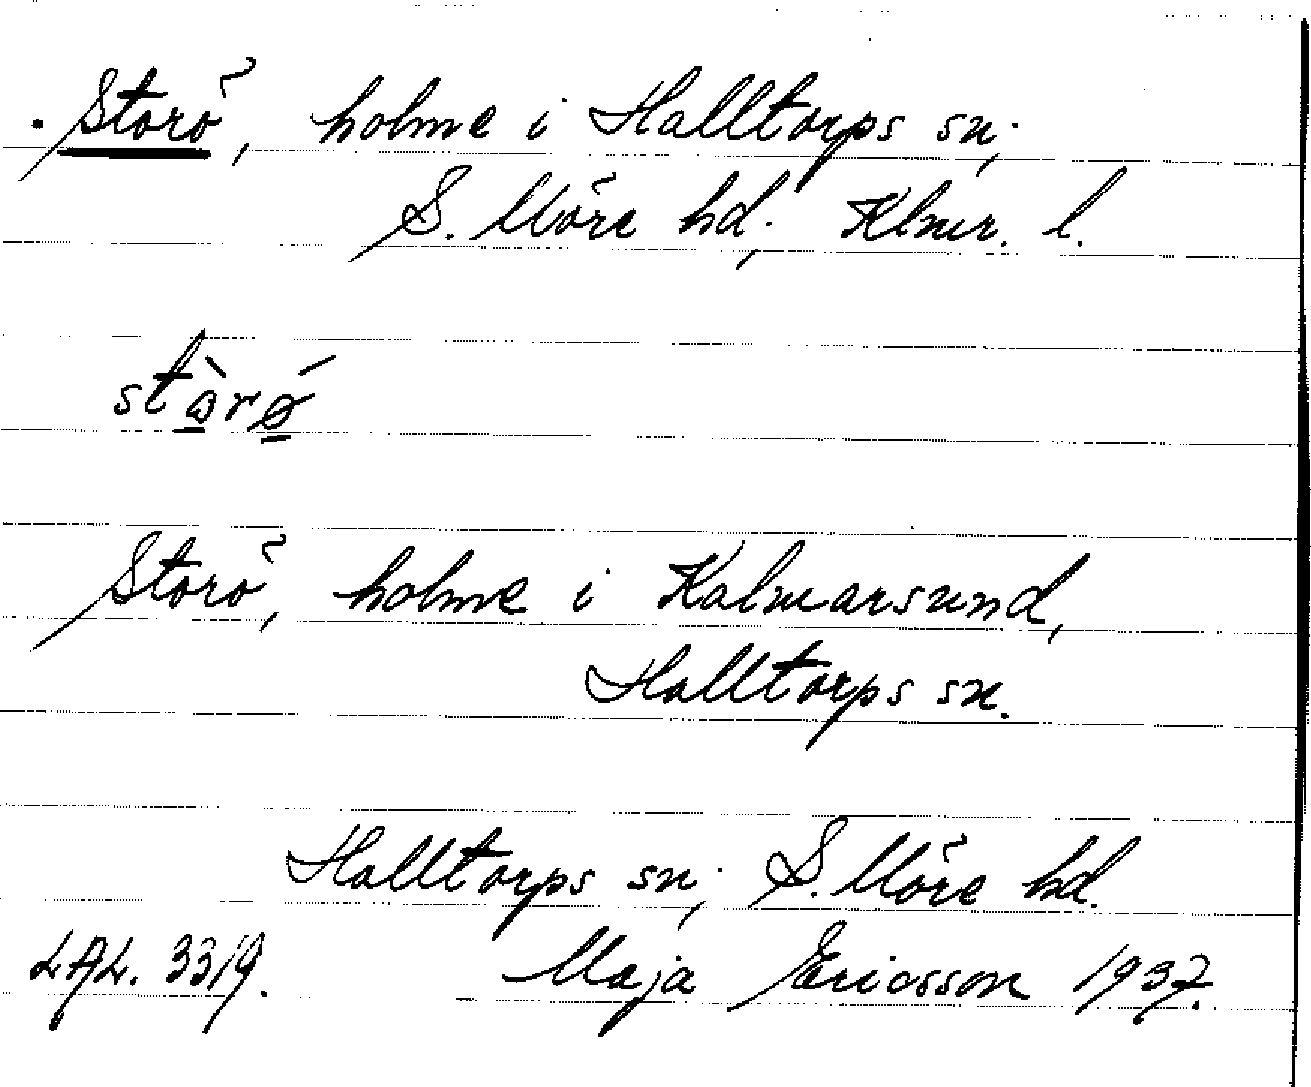 . Storö, holme i Halltorps sn;
S. Möre hd; Klmr. l.
stòrǿ
Storö, holme i Kalmarsund,
Halltorps sn.
Halltorps sn; S. Möre hd.
LAL. 3319. Maja Ericsson 1937.